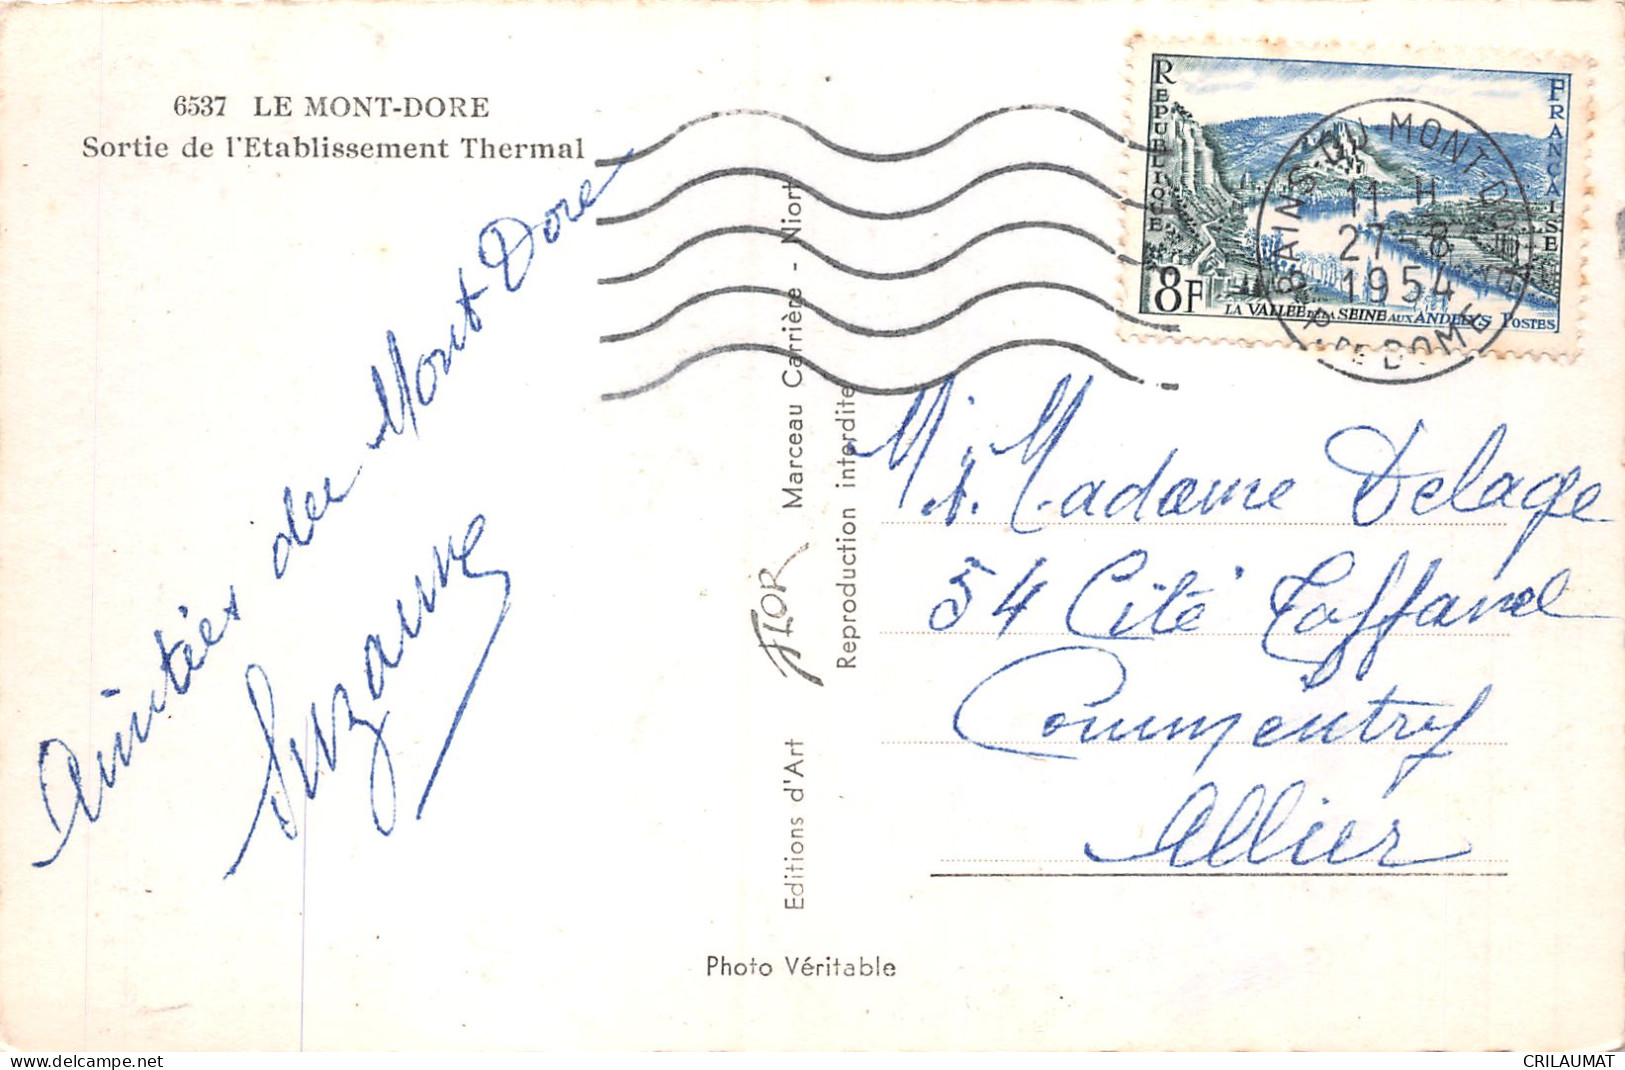 6537 LE MONT-DORE
Sortie de l'Etablissement Thermal
Amitiés du Mont Dore
Suzanne
Editions d'Art FLOR Marceau Carrière - Niort
Reproduction interdite
Photo Véritable
REPUBLIQUE FRANÇAISE
8F
LA VALLEE DE LA SEINE AUX ANDELYS POSTES
BAINS DU MONT-DORE
11 H
27-8
1954
P. DE DOME
M. Madame Delage
54 Cité
Commentry
Allier
delcampe.net
CRILAUMAT